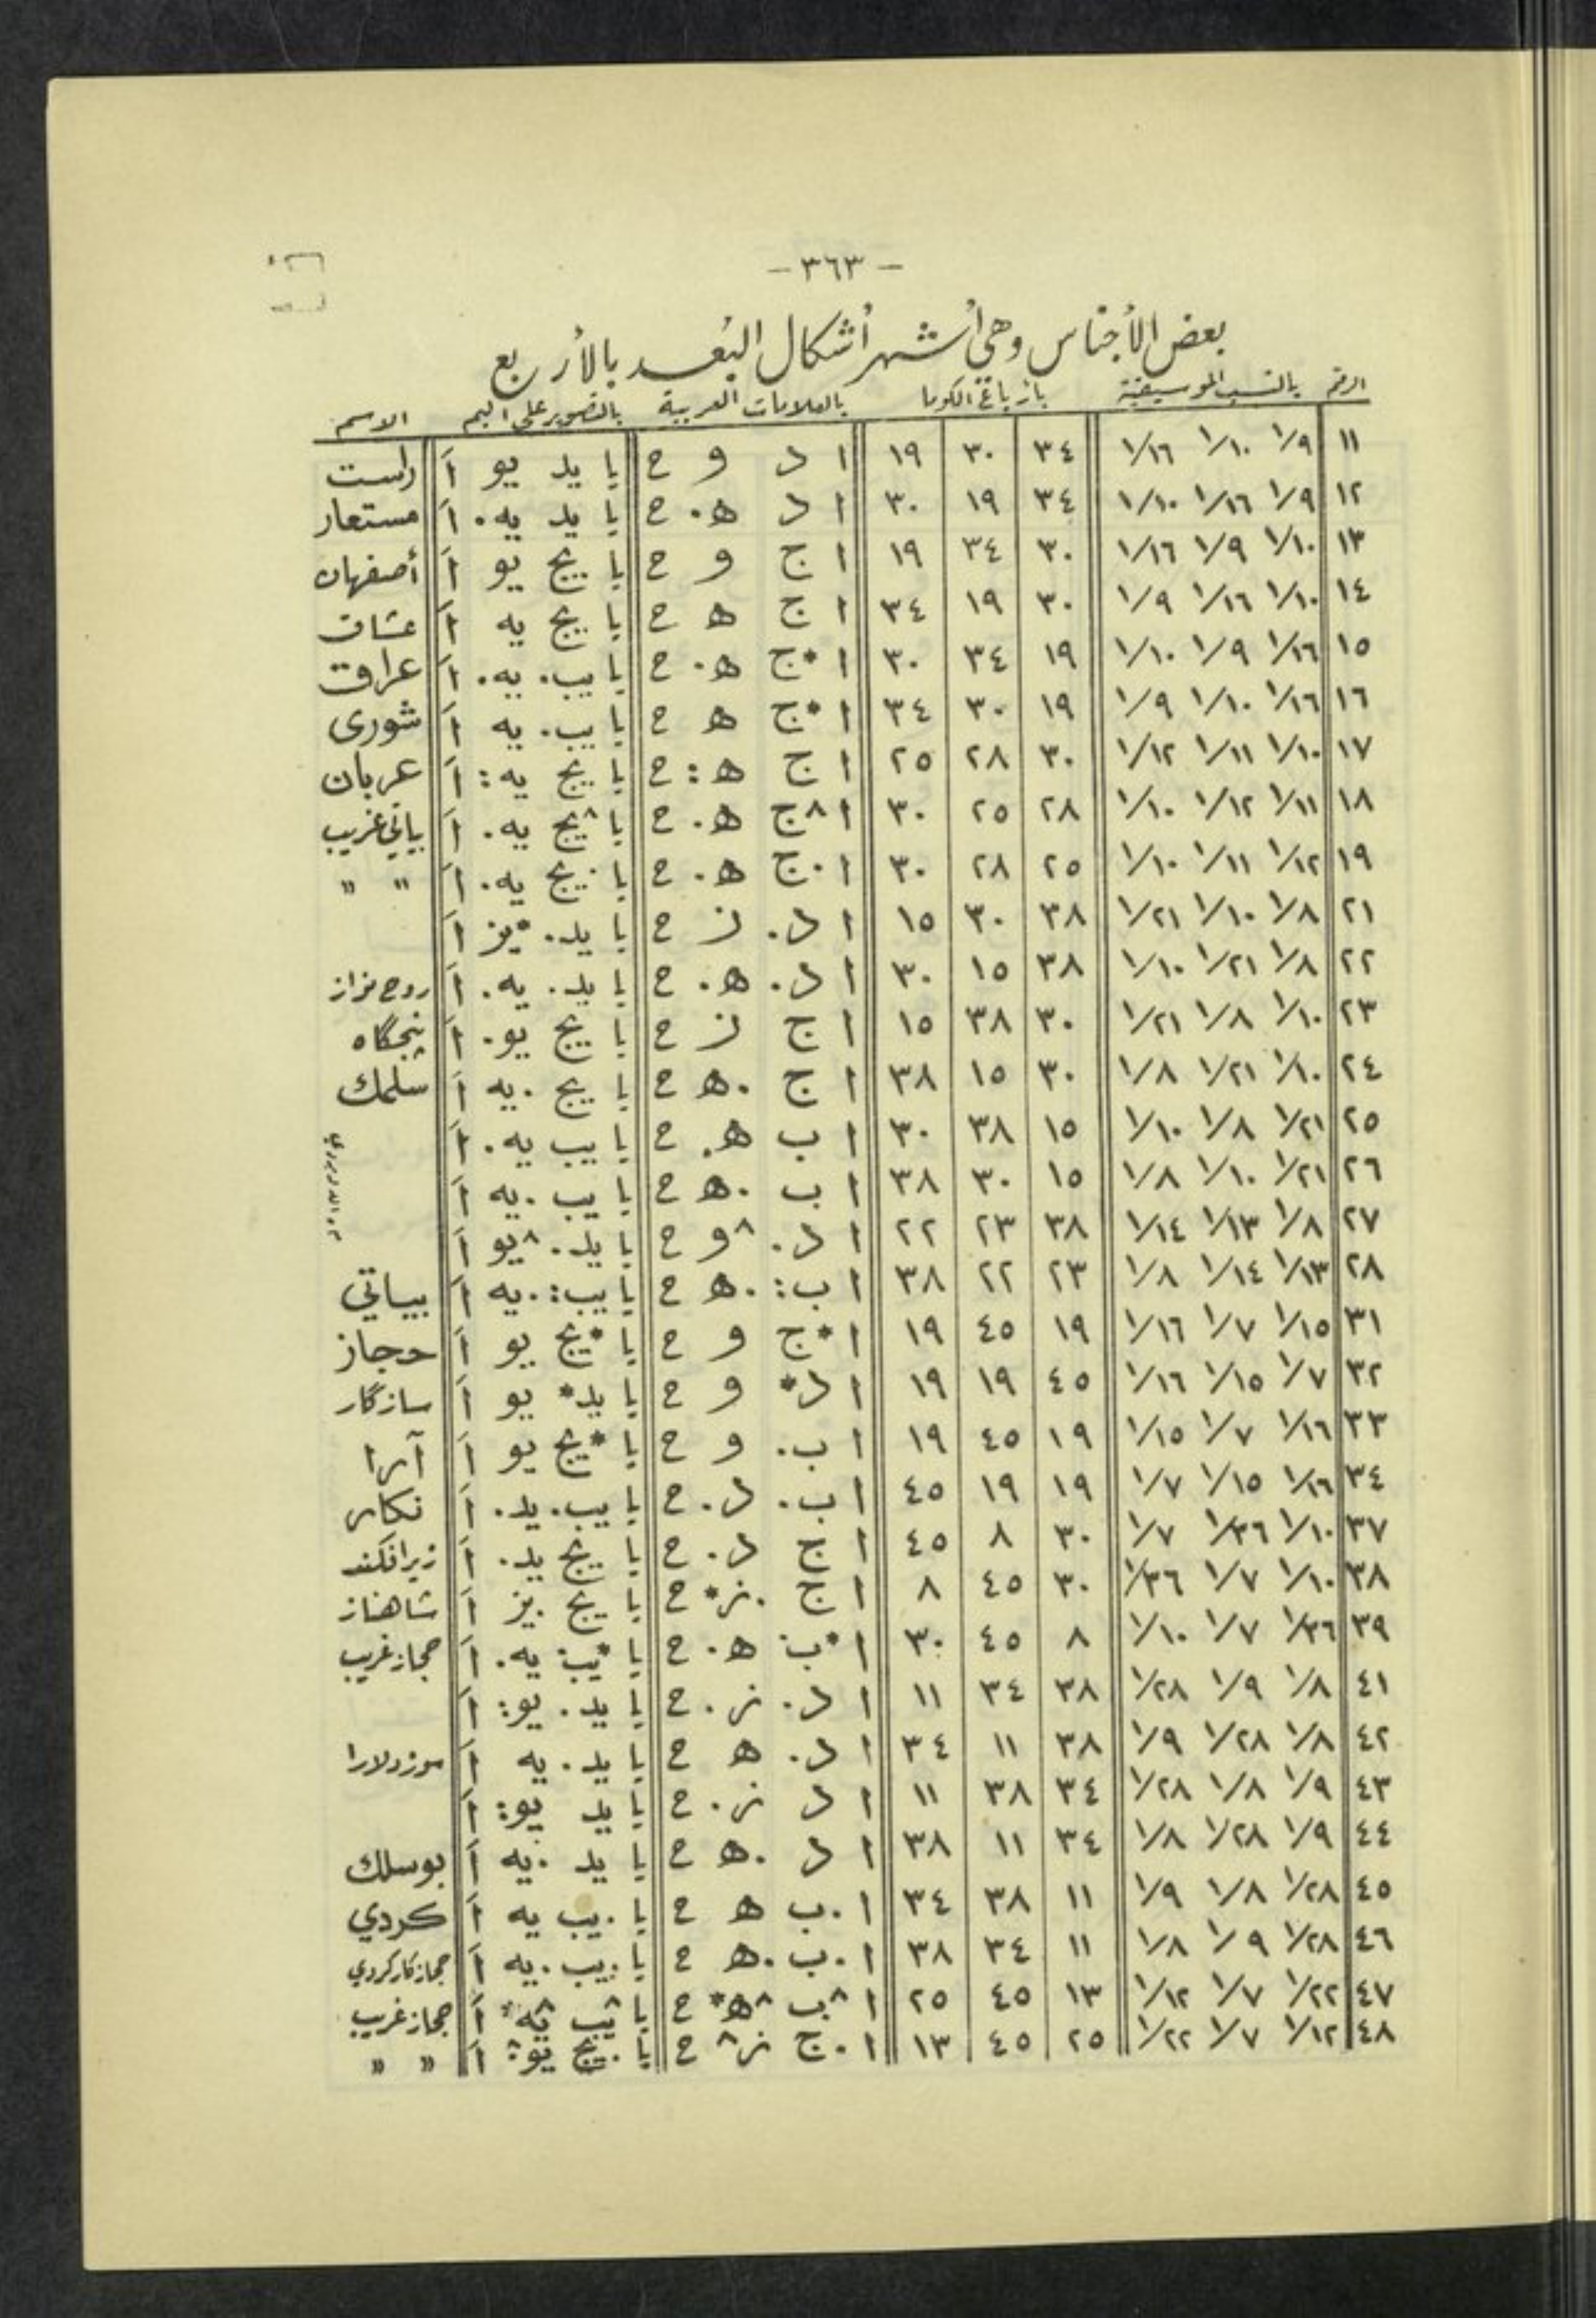 - ٣٦٣ -
بعض الأجناس وهي أشهر أشكال البُعد بالأربع
الرقم بالنسب الموسيقية بأرباع الكوما بالعلامات العربية بالتصوير على اليم الاسم
١١ ١/٩ ١/١٠ ١/١٦ ٣٤ ٣٠ ١٩ ا د و ح يا يد يو اَ راست
١٢ ١/٩ ١/١٦ ١/١٠ ٣٤ ١٩ ٣٠ ا د ه. ح يا يد يه. اَ مستعار
١٣ ١/١٠ ١/٩ ١/١٦ ٣٠ ٣٤ ١٩ ا ج و ح يا يج يو اَ أصفهان
١٤ ١/١٠ ١/١٦ ١/٩ ٣٠ ١٩ ٣٤ ا ج ه ح يا يج يه اَ عشاق
١٥ ١/١٦ ١/٩ ١/١٠ ١٩ ٣٤ ٣٠ ا *ج ه. ح يا يب. يه. اَ عراق
١٦ ١/١٦ ١/١٠ ١/٩ ١٩ ٣٠ ٣٤ ا *ج ه ح يا يب. يه اَ شوري
١٧ ١/١٠ ١/١١ ١/١٢ ٣٠ ٢٨ ٢٥ ا ج ه: ح يا يج يه: اَ عربان
١٨ ١/١١ ١/١٢ ١/١٠ ٢٨ ٢٥ ٣٠ ا ^ج ه. ح يا ^يج يه. اَ بياتي غريب
١٩ ١/١٢ ١/١١ ١/١٠ ٢٥ ٢٨ ٣٠ ا .ج ه. ح يا .يج يه. اَ " "
٢١ ١/٨ ١/١٠ ١/٢١ ٣٨ ٣٠ ١٥ ا د. ز ح يا يد. *يز اَ
٢٢ ١/٨ ١/٢١ ١/١٠ ٣٨ ١٥ ٣٠ ا د. ه. ح يا يد. يه. اَ روح نواز
٢٣ ١/١٠ ١/٨ ١/٢١ ٣٠ ٣٨ ١٥ ا ج ز ح يا يج يو. اَ پنجگاه
٢٤ ١/١٠ ١/٢١ ١/٨ ٣٠ ١٥ ٣٨ ا ج .ه ح يا يج .يه اَ سلمك
٢٥ ١/٢١ ١/٨ ١/١٠ ١٥ ٣٨ ٣٠ ا ب ه. ح يا يب يه. اَ
٢٦ ١/٢١ ١/١٠ ١/٨ ١٥ ٣٠ ٣٨ ا ب .ه ح يا يب .يه اَ
٢٧ ١/٨ ١/١٣ ١/١٤ ٣٨ ٢٣ ٢٢ ا د. ^و ح يا يد. ^يو اَ
٢٨ ١/١٣ ١/١٤ ١/٨ ٢٣ ٢٢ ٣٨ ا ب: .ه ح يا يب: .يه اَ بياتي
٣١ ١/١٥ ١/٧ ١/١٦ ١٩ ٤٥ ١٩ ا *ج و ح يا *يج يو اَ حجاز
٣٢ ١/٧ ١/١٥ ١/١٦ ٤٥ ١٩ ١٩ ا د* و ح يا يد* يو اَ سازگار
٣٣ ١/١٦ ١/٧ ١/١٥ ١٩ ٤٥ ١٩ ا ب. و ح يا *يج يو اَ آرا
٣٤ ١/١٦ ١/١٥ ١/٧ ١٩ ١٩ ٤٥ ا ب. د. ح يا يب. يد. اَ نكار
٣٧ ١/١٠ ١/٣٦ ١/٧ ٣٠ ٨ ٤٥ ا ج د. ح يا يج يد. اَ زيرافكند
٣٨ ١/١٠ ١/٧ ١/٣٦ ٣٠ ٤٥ ٨ ا ج .ز* ح يا يج .يز اَ شاهناز
٣٩ ١/٣٦ ١/٧ ١/١٠ ٨ ٤٥ ٣٠ ا *ب ه. ح يا *يب يه. اَ حجاز غريب
٤١ ١/٨ ١/٩ ١/٢٨ ٣٨ ٣٤ ١١ ا د. ز. ح يا يد. يو: اَ
٤٢ ١/٨ ١/٢٨ ١/٩ ٣٨ ١١ ٣٤ ا د. ه ح يا يد. يه اَ سوزدلارا
٤٣ ١/٩ ١/٨ ١/٢٨ ٣٤ ٣٨ ١١ ا د ز. ح يا يد يو: اَ
٤٤ ١/٩ ١/٢٨ ١/٨ ٣٤ ١١ ٣٨ ا د .ه ح يا يد .يه اَ بوسلك
٤٥ ١/٢٨ ١/٨ ١/٩ ١١ ٣٨ ٣٤ ا .ب ه ح يا .يب يه اَ كردي
٤٦ ١/٢٨ ١/٩ ١/٨ ١١ ٣٤ ٣٨ ا .ب .ه ح يا .يب .يه اَ حجازكاركردي
٤٧ ١/٢٢ ١/٧ ١/١٢ ١٣ ٤٥ ٢٥ ا ^ب ^ه* ح يا ^يب ^يه اَ حجاز غريب
٤٨ ١/١٢ ١/٧ ١/٢٢ ٢٥ ٤٥ ١٣ ا .ج ز^ ح يا .يج يو: اَ " "